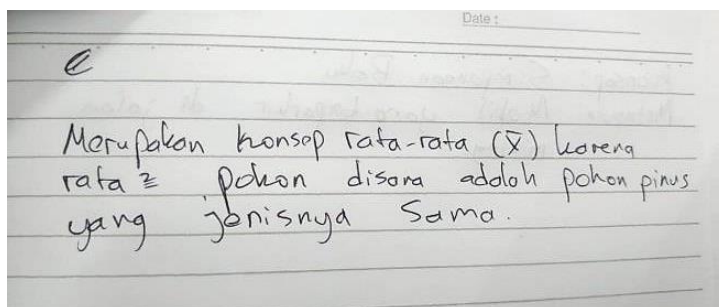 Date :
e
Merupakan konsep rata-rata (x̄) karena
rata² pohon disana adalah pohon pinus
yang jenisnya sama.